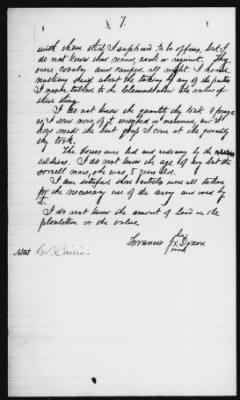 7
with them that I supposed to be officers, but I
do not know their names, rank or regiment. They
were cavalry and camped all night. I heard
nothing said about the taking of any of the property
I maybe talked to the Claimant about the value of
these things.
I do not know the quantity they took of forage
as I saw none of it weighed or measured, and I
have made the best guess I can at the quantity
they took.
The horses were led and rode away by the
soldiers. I do not know the age of any but the
sorrell mare, she was 5 years old.
I am satisfied these articles were all taken
for the necessary use of the army and used by
it.
I do not know the amount of land in the
plantation or the value
his
Francis X Dixon
mark
Attest